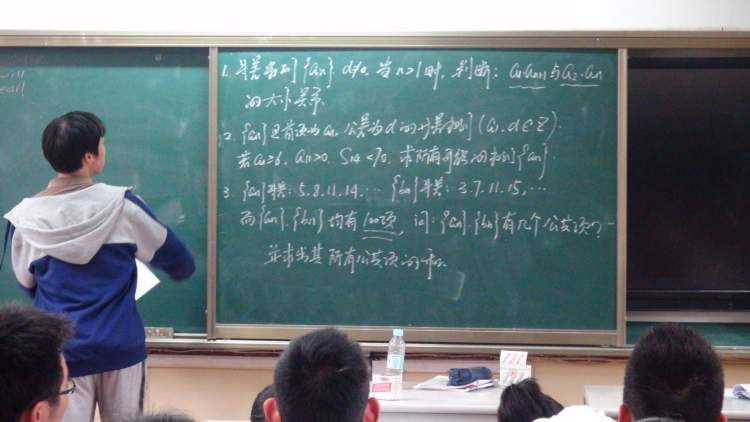 will
year!
1. 等差数列{an}, d≠0, 当n>1时, 判断: a1·an+1与a2·an
的大小关系.
2. {an}是首项为a1, 公差为d的等差数列(a1, d∈Z).
若a1≥6, a11>0, S14<70, 求所有可能的数列{an}.
3. {an}等差: 5.8.11.14.… {bn}等差: 3.7.11.15,…
而{an}.{bn}均有100项, 问: {an}.{bn}有几个公共项?
并求出其所有公共项的和.